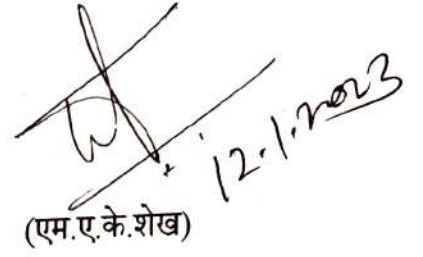 12.1.2023
(एम.ए.के.शेख)